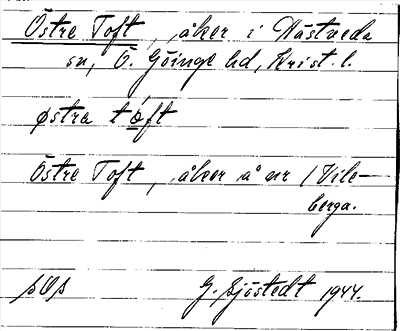 Östre Toft, åker i Hästveda
sn, Ö. Göinge hd, Krist. l.
østra tǫ́ft
Östre Toft, åker å nr 1 Vile-
berga.
G. Sjöstedt 1944.